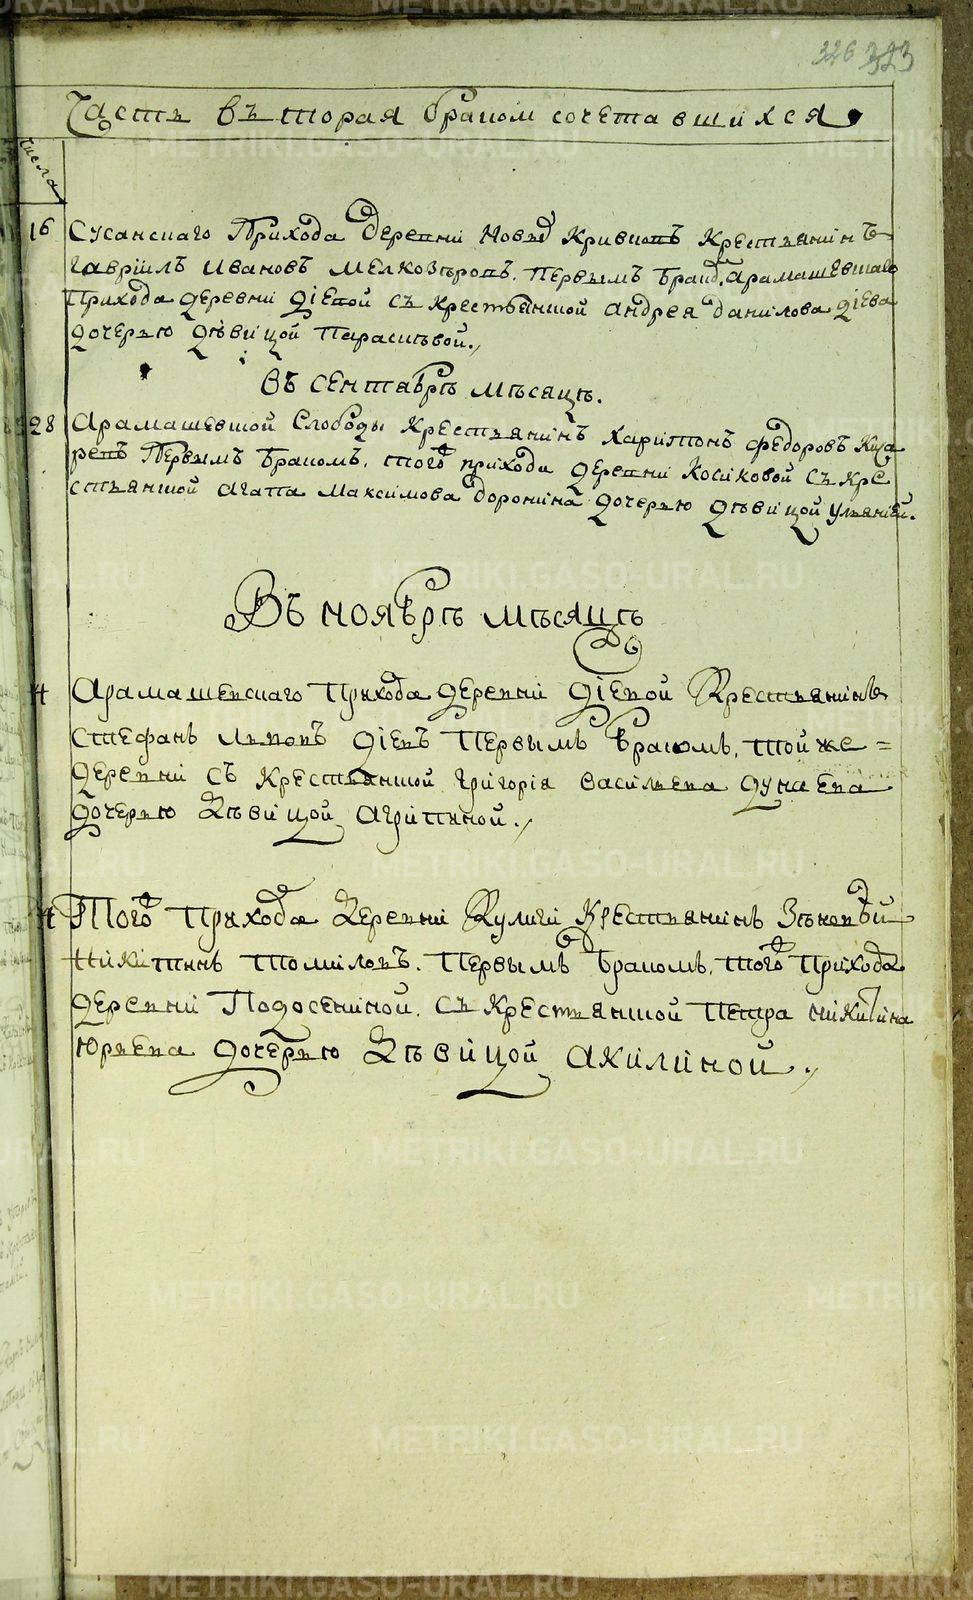 326 323
Часть вторая браком сочетавшихся
числа
16 Сусанскаго Прихода деревни Новыд Кривковъ Крестьянинъ
Гаврiилъ Ивановъ Мелкозеровъ. Первымъ брако. Арамашевскаго
Прихода деревни Дiевой съ крестьянской Андрея Данилова Дiева
дочерью дѣвицой Парасковой.
Въ сентябрѣ мѣсяцѣ.
28 Арамашевской Слободы Крестьянинъ Харитонъ Федоровъ
Первымъ бракомъ. того прихода деревни Косиковой съ кре
стьянской Агапа Максимова Доронина дочерью дѣвицой Ульянiей.
Въ ноябрѣ мѣсяцѣ
Арамашевскаго Прихода деревни Дiевой Крестьянинъ
Стефанъ Львовъ Дiевъ Первымъ бракомъ, той же =
деревни съ Крестьянской Григорiя Васильева Дунаева
дочерью дѣвицой Агрипиной.
Того Прихода деревни Кулиги Крестьянинъ Зѣновѣй
Никитинъ Томиловъ. Первымъ бракомъ, того Прихода
деревни Подосениной. съ Крестьянской Петра Никитина
Юрьева дочерью дѣвицой Акилиной.
METRIKI.GASO-URAL.RU